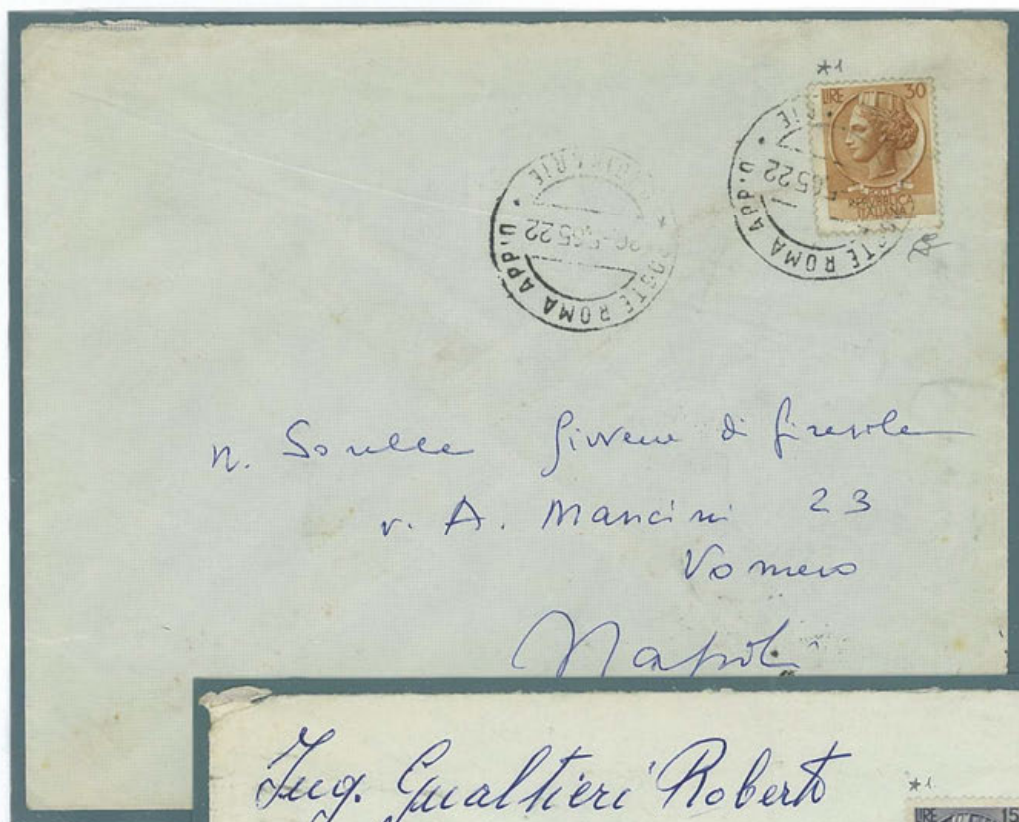 *1
LIRE 30
POSTE
REPVBBLICA
ITALIANA
POSTE ROMA APP.
6522
POSTE ROMA APP.
6522
n. Sorelle Giovene di Girasole
v. A. Mancini 23
Vomero
Napoli
Ing. Gualtieri Roberto
*1
LIRE 15